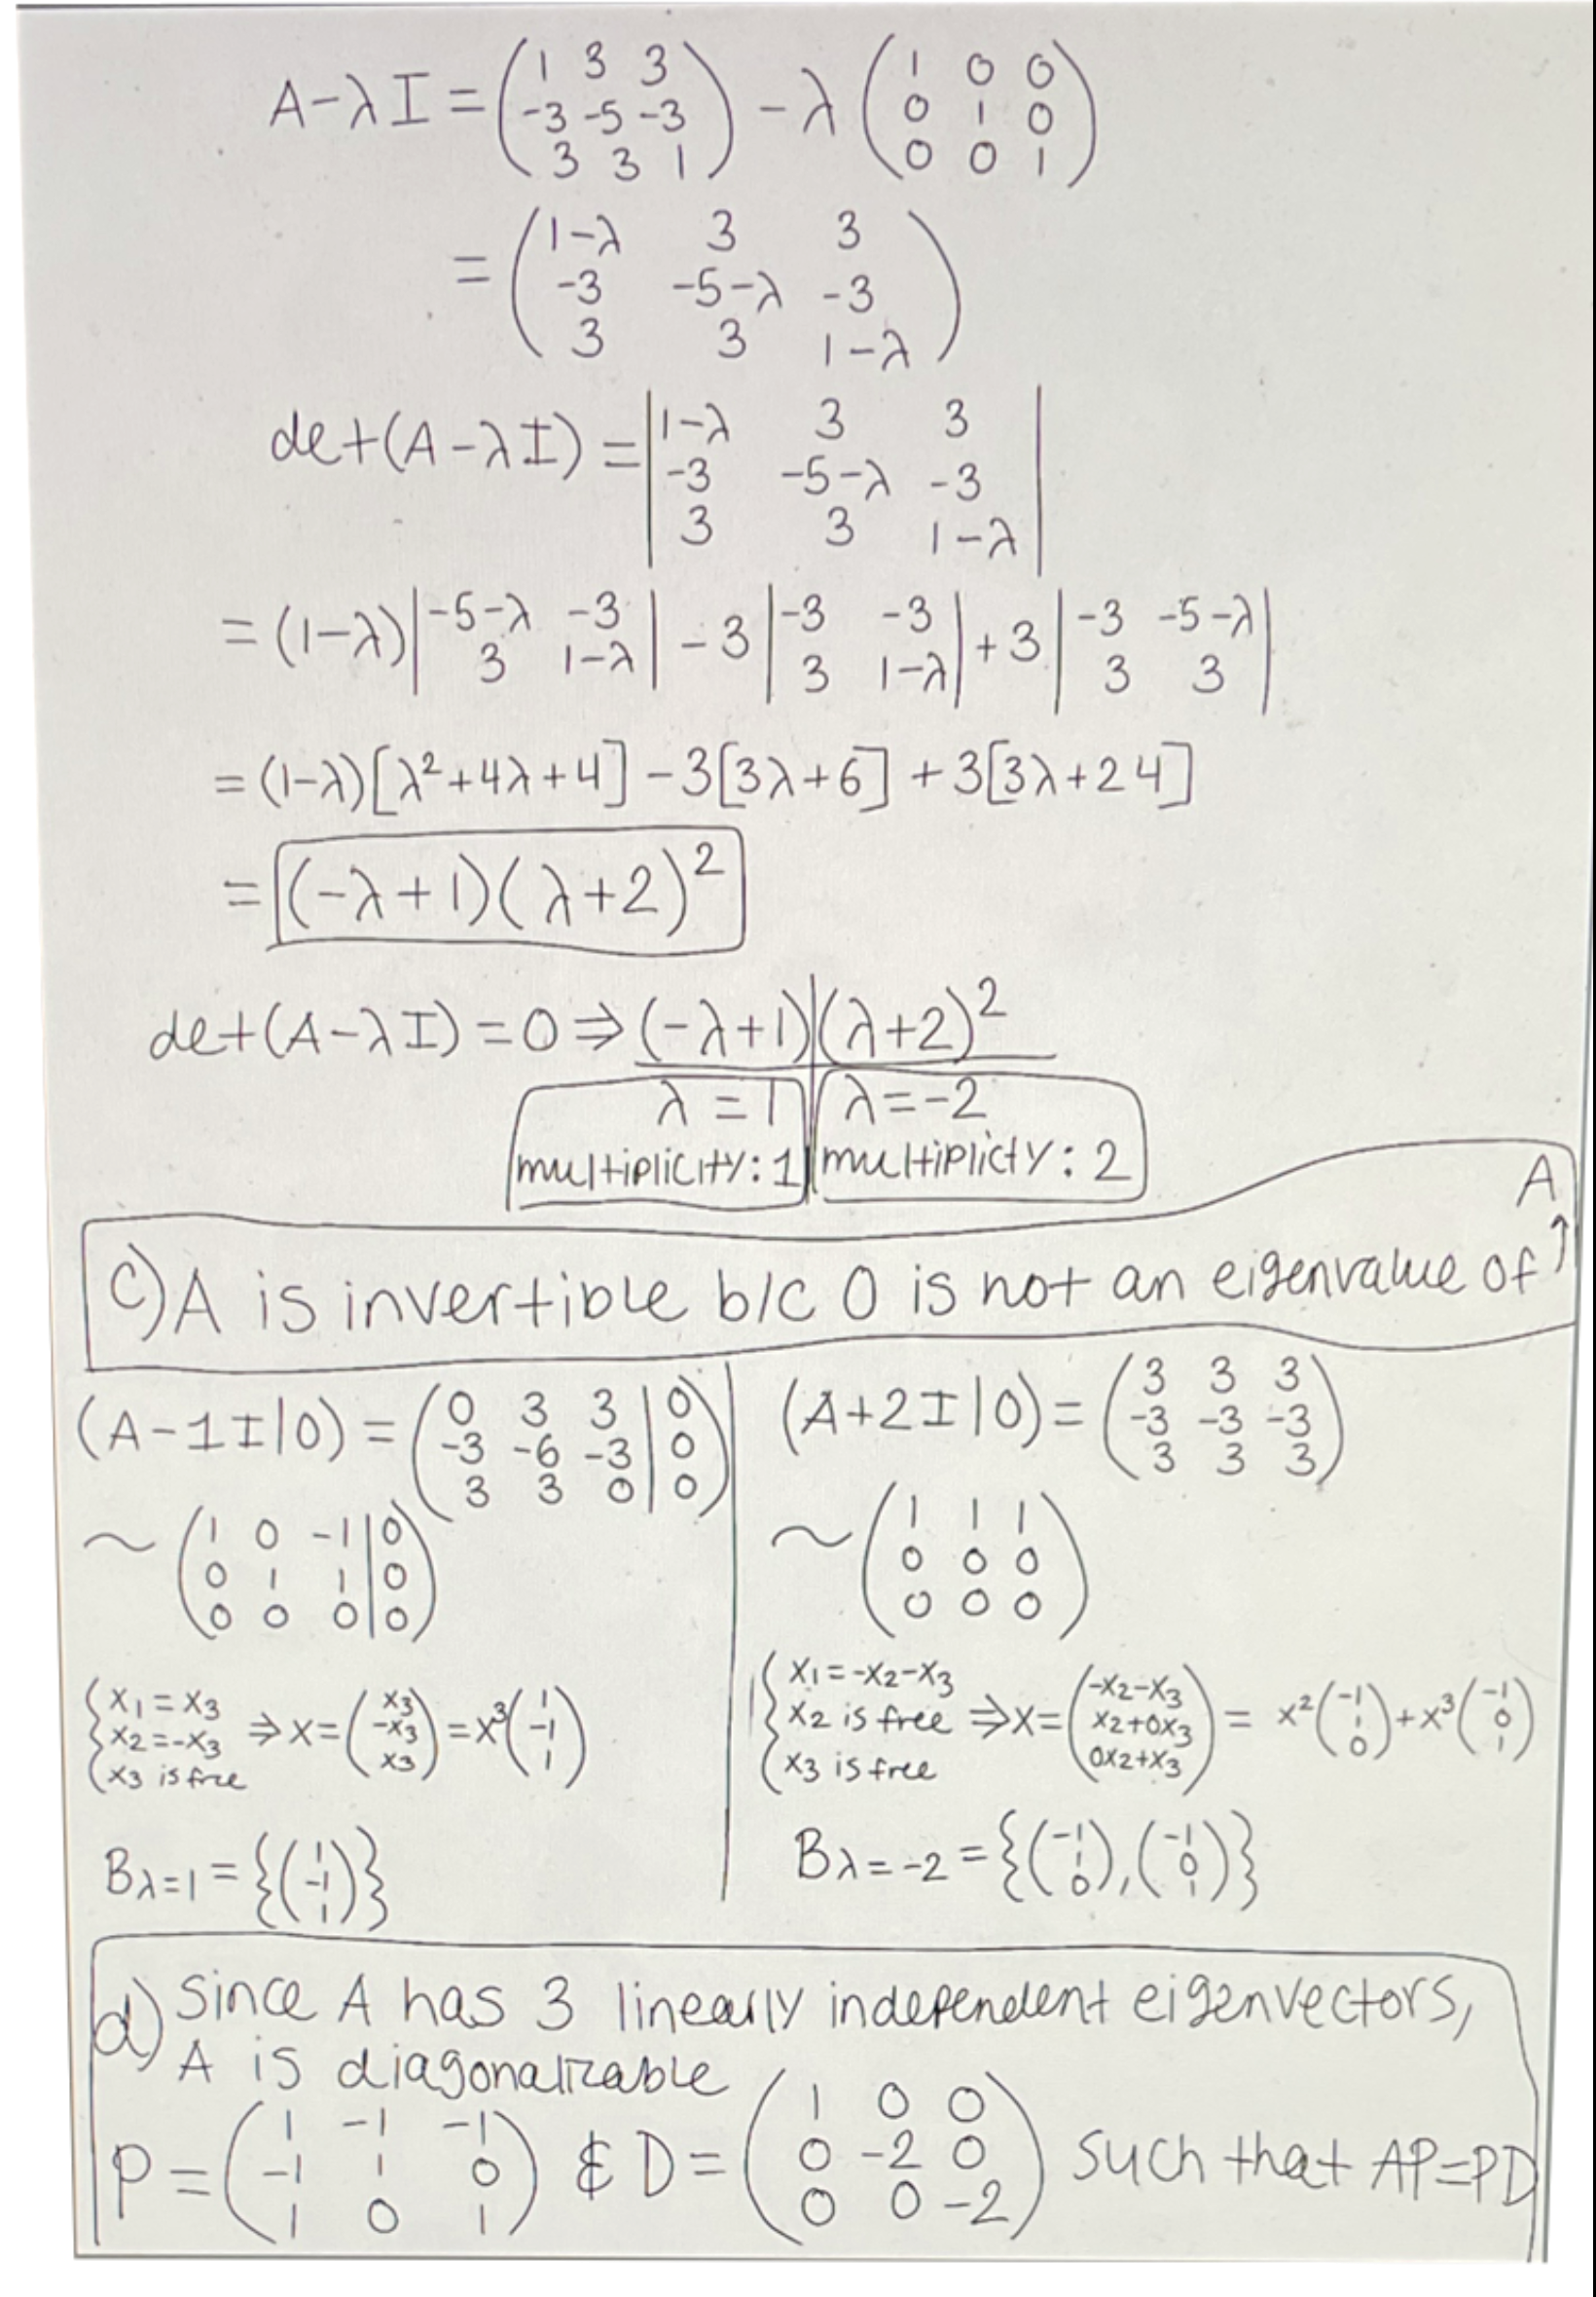 A-λI = (1 3 3; -3 -5 -3; 3 3 1) - λ(1 0 0; 0 1 0; 0 0 1)
= (1-λ 3 3; -3 -5-λ -3; 3 3 1-λ)
det(A-λI) = |1-λ 3 3; -3 -5-λ -3; 3 3 1-λ|
= (1-λ)|-5-λ -3; 3 1-λ| - 3|-3 -3; 3 1-λ| + 3|-3 -5-λ; 3 3|
= (1-λ)[λ²+4λ+4] - 3[3λ+6] + 3[3λ+24]
= (-λ+1)(λ+2)²
det(A-λI) = 0 ⇒ (-λ+1)|(λ+2)²
λ = 1 | λ = -2
multiplicity: 1 | multiplicty: 2
c) A is invertible b/c 0 is not an eigenvalue of ↑ A
(A-1I|0) = (0 3 3|0; -3 -6 -3|0; 3 3 0|0)
~ (1 0 -1|0; 0 1 1|0; 0 0 0|0)
{x₁ = x₃; x₂ = -x₃; x₃ is free ⇒ x = (x₃; -x₃; x₃) = x³(1; -1; 1)
B λ=1 = {(1; -1; 1)}
(A+2I|0) = (3 3 3; -3 -3 -3; 3 3 3)
~ (1 1 1; 0 0 0; 0 0 0)
{x₁ = -x₂-x₃; x₂ is free; x₃ is free ⇒ x = (-x₂-x₃; x₂+0x₃; 0x₂+x₃) = x²(-1; 1; 0) + x³(-1; 0; 1)
B λ=-2 = {(-1; 1; 0), (-1; 0; 1)}
d) Since A has 3 linearly independent eigenvectors,
A is diagonalizable
P = (1 -1 -1; -1 1 0; 1 0 1) & D = (1 0 0; 0 -2 0; 0 0 -2) such that AP=PD